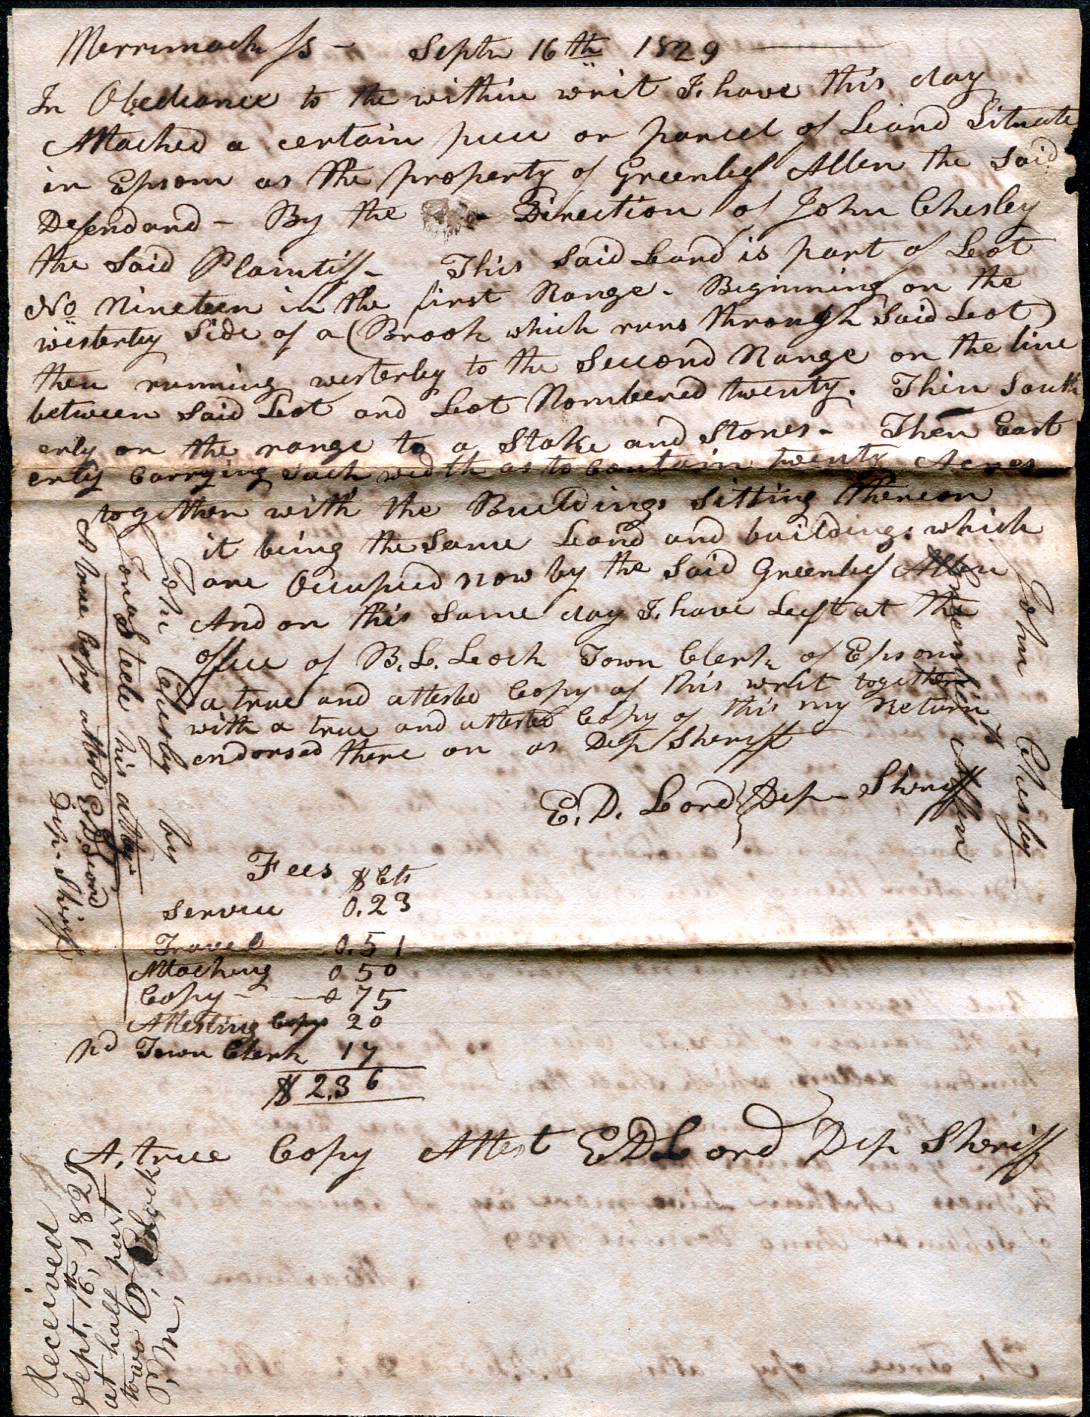 Merrimack ss - Septr 16th 1829
In Obedience to the within writ I have this day
Attached a certain piece or parcel of Leand Situate
in Epsom as the property of Greenleaf Allen the Said
Defendand - By the Direction of John Chesley
the Said Plaintiff - This Said Leand is part of Leot
No Nineteen in the first Range - Beginning on the
westerly Side of a (Brook which runs through Said Leot)
then running westerley to the Second Range on the line
between Said Leot and Leot Nombered twenty. Then South
erly on the range to a Stake and Stones - Then East
erly Carrying Such width as to Contain twenty Acres
together with the Buildings Sitting thereon
it being the Same Leand and buildings which
are Occupied now by the Said Greenleaf Allen
And on this Same day I have Left at the
office of B. L. Leock Town Clerk of Epsom
a true and attested Copy of this writ together
with a true and attested Copy of this my Return
endorsed there on as Dep Sheriff
E. D. Lord } Dep Sheriff
John Chesley
Greenlief Allen
John Chesley by
Jona Steele his atty
A true Copy attest E D Lord
Dep. Sheriff
Fees $ Cts
Service 0.23
Travel 0.51
Attaching 0 50
Copy - 0 75
Attesting Copy 20
pd Town Clerk 17
$ 2.36
A true Copy Attest E D Lord Dep Sheriff
Received
Sept. 16th, 1829
at half past
two O' Clock
P.M.